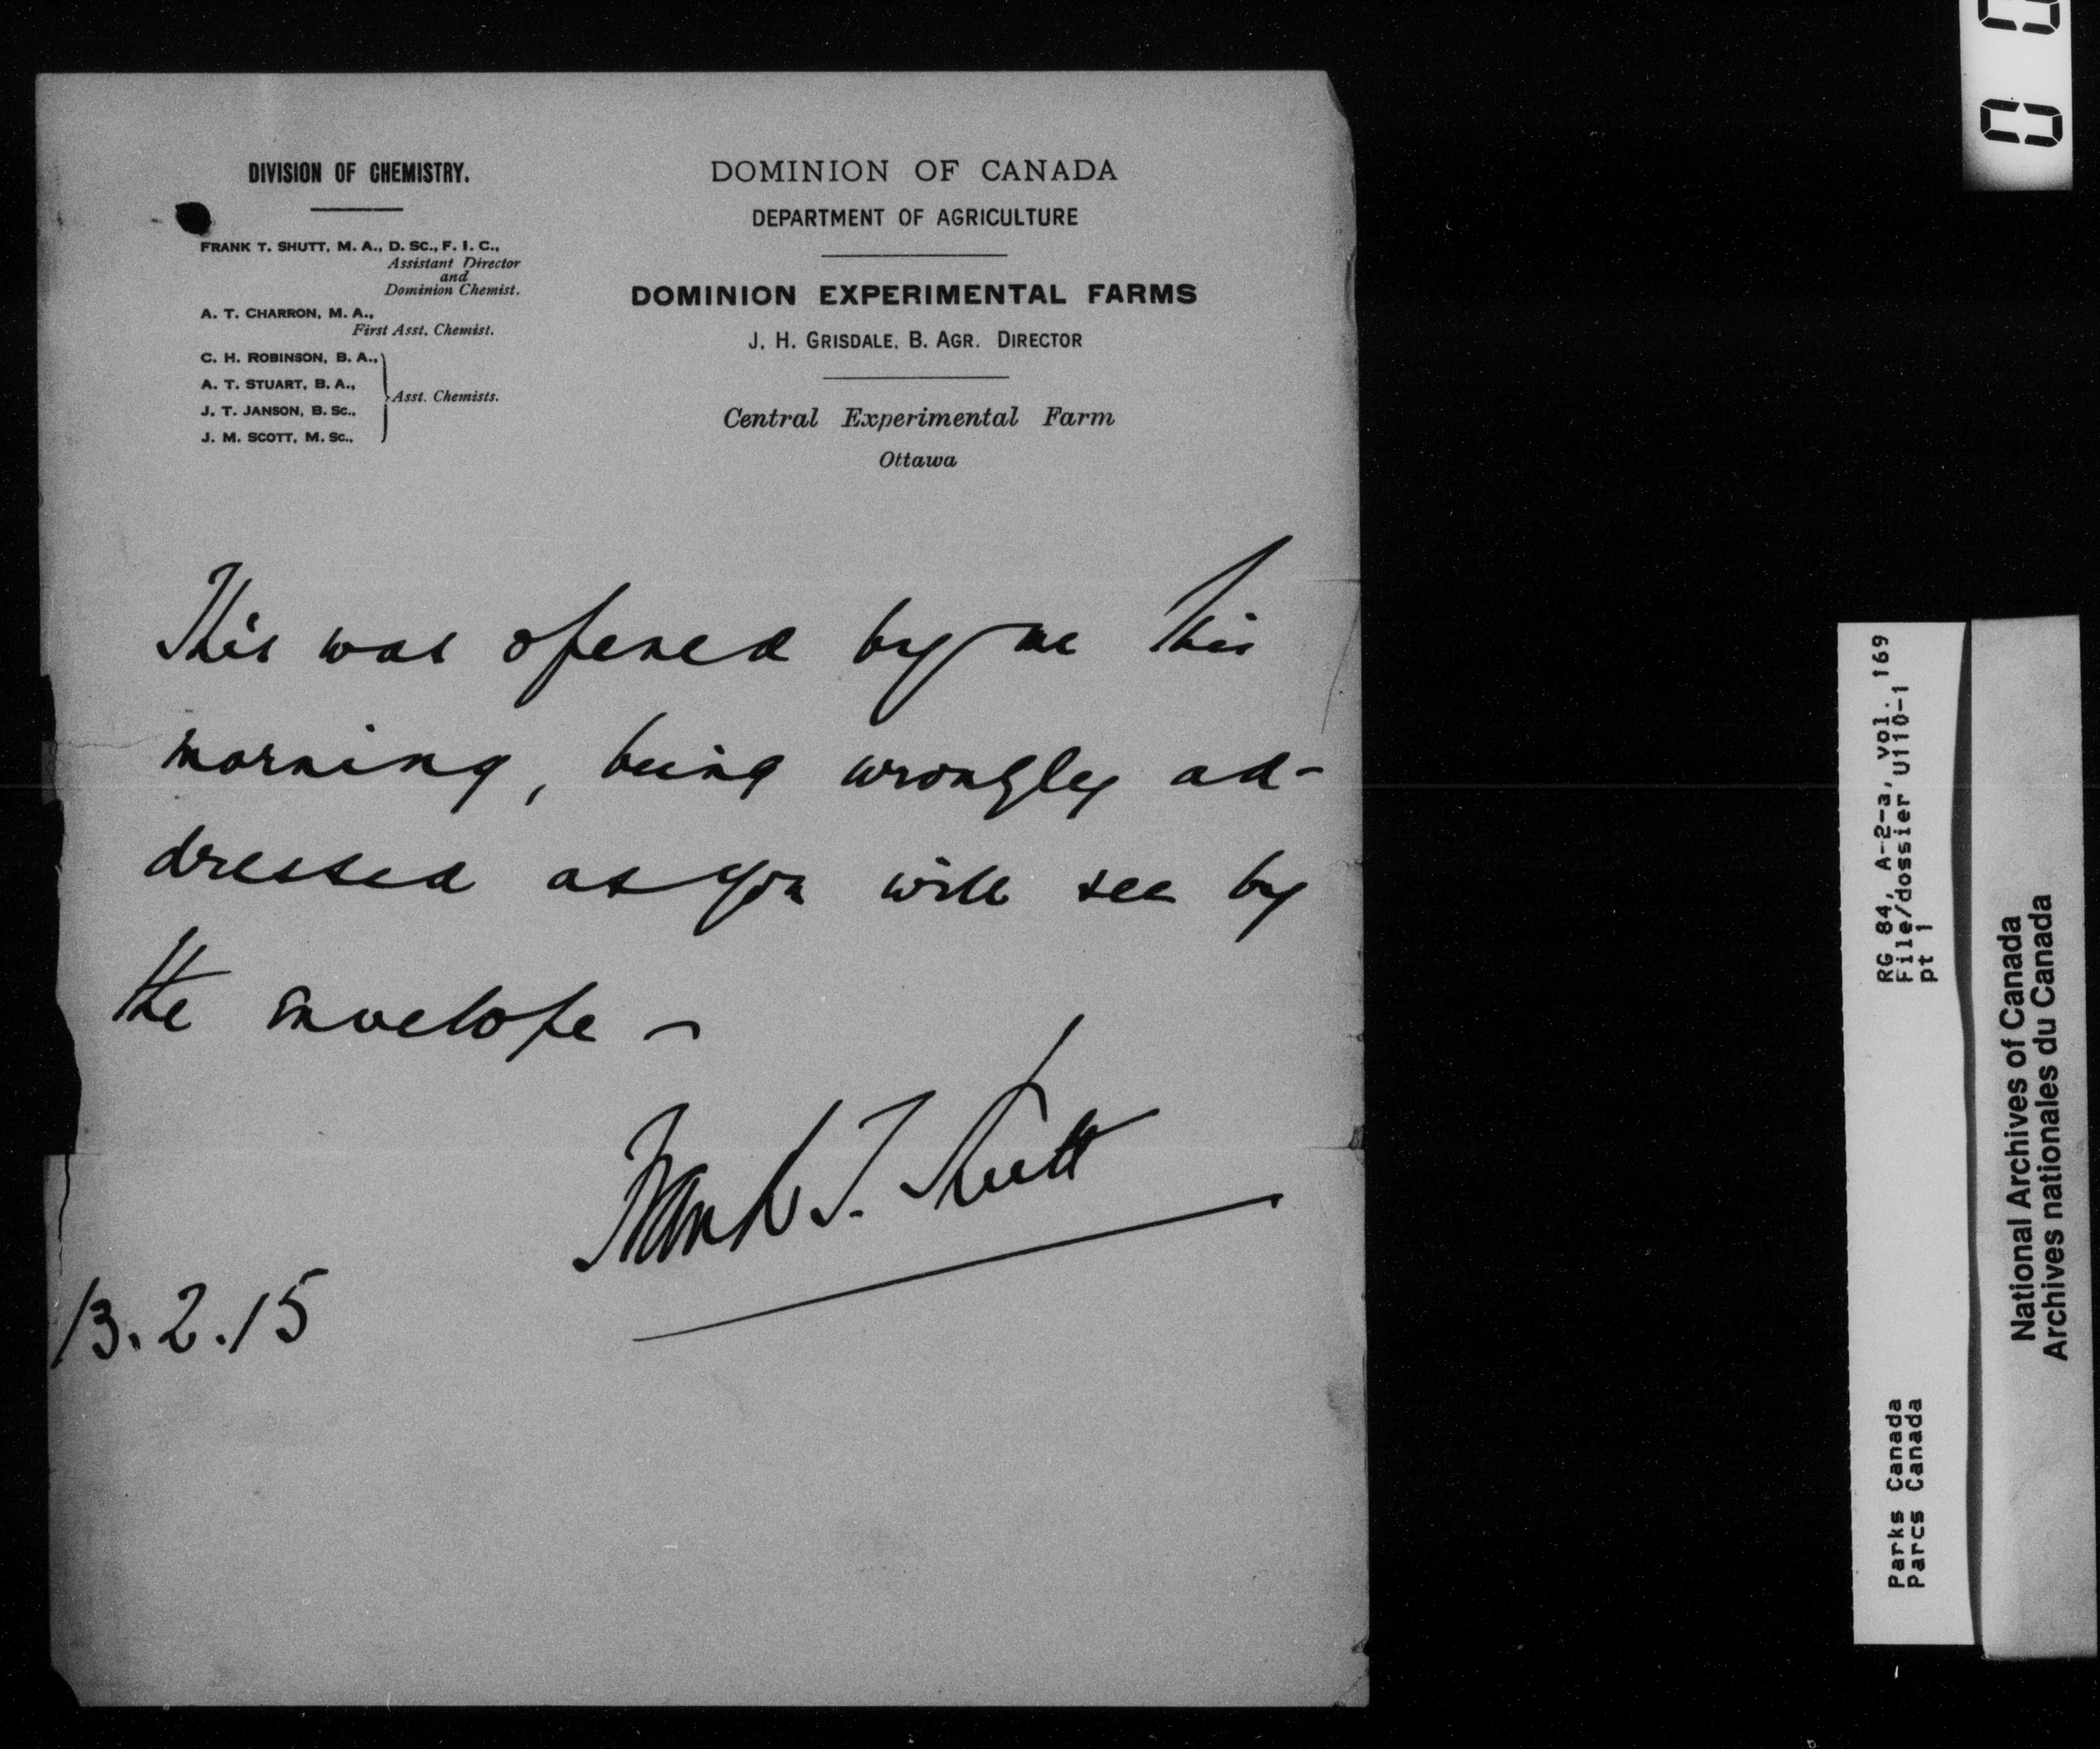 DIVISION OF CHEMISTRY.
FRANK T. SHUTT, M. A., D. SC., F. I. C.,
Assistant Director
and
Dominion Chemist.
A. T. CHARRON, M. A.,
First Asst. Chemist.
C. H. ROBINSON, B. A.,
A. T. STUART, B. A.,
Asst. Chemists.
J. T. JANSON, B. Sc.,
J. M. SCOTT, M. Sc.,
DOMINION OF CANADA
DEPARTMENT OF AGRICULTURE
DOMINION EXPERIMENTAL FARMS
J. H. GRISDALE, B. AGR. DIRECTOR
Central Experimental Farm
Ottawa
This was opened by me this
morning, being wrongly ad-
dressed as you will see by
the envelope -
Frank T. Shutt
13.2.15
RG 84, A-2-a, vol. 169
File/dossier U110-1
pt 1
Parks Canada
Parcs Canada
National Archives of Canada
Archives nationales du Canada